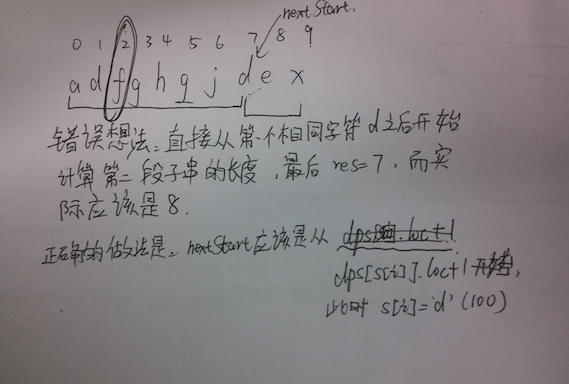 nextStart.
0 1 2 3 4 5 6 7 8 9
a d f g h q j d e x
错误想法：直接从第一个相同字符d之后开始
计算第二段子串的长度，最后res=7，而实
际应该是8.
正确的做法是：nextStart应该是从
dps[s[i]].loc+1开始，
此时 s[i]='d' (100)